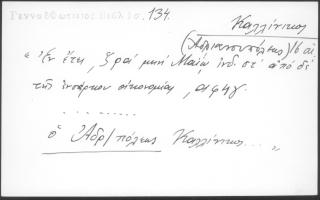 Γεννάδιος Βιβλιοθ. 134.
Καλλίνικος
(Ἀδριανουπόλεως) 16 αἰ
« Ἐν ἔτει, ζραί μηνὶ Μαίῳ ἰνδ. στ´ ἀπὸ δὲ
τῆς ἐνσάρκου οἰκονομίας, αφψγ
. . . . . . .
ὁ Ἀδρ/πόλεως Καλλίνικος... »